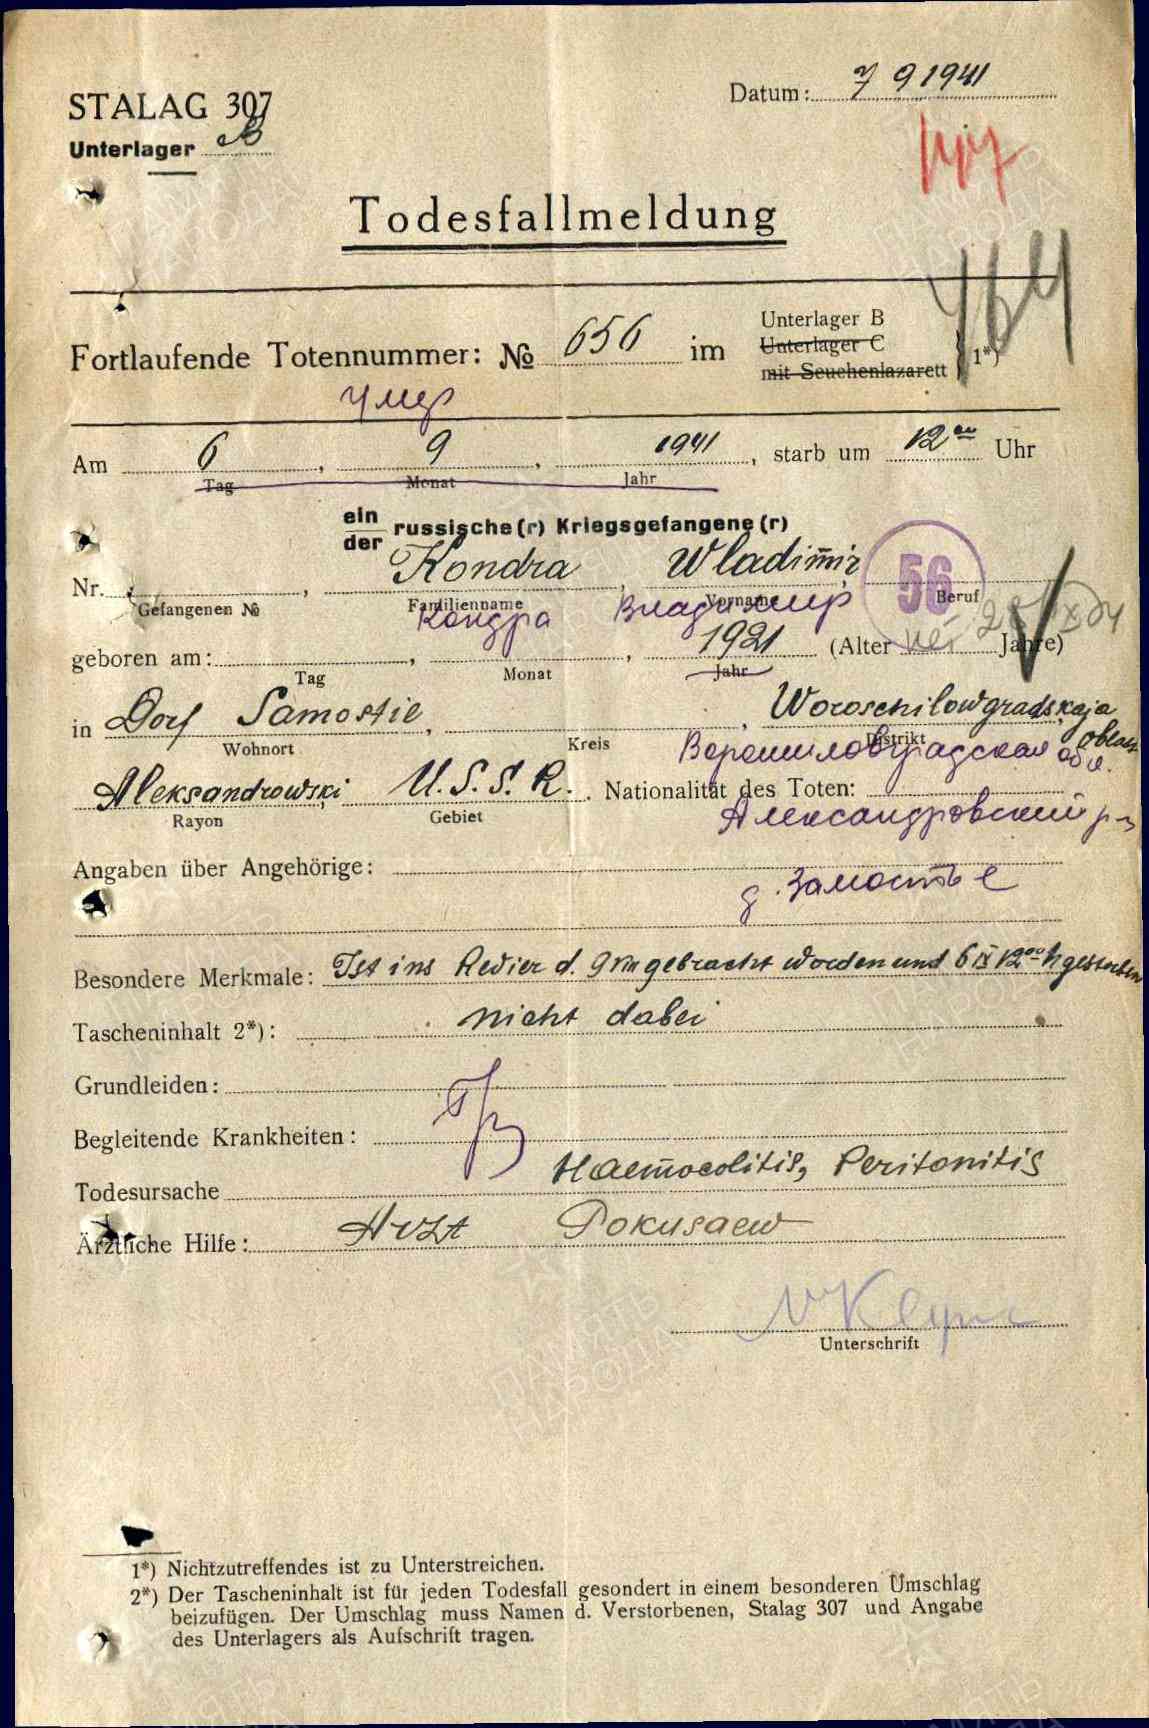 Datum: 7 9 1941
STALAG 307
Unterlager B
Todesfallmeldung
Unterlager B
Fortlaufende Totennummer: № 656 im Unterlager C 1*)
mit Seuchenlazarett
764
умер
Am 6, 9, 1941, starb um 12 Uhr
Tag Monat Jahr
ein
der russische(r) Kriegsgefangene(r)
Nr. , Kondra, Wladimir 56
Gefangenen № Familienname Vorname Beruf
Кондра Владимир
geboren am: , , 1921 (Alter Jahre)
Tag Monat Jahr
in Dorf Samostie, , Woroschilowgradskaja
Wohnort Kreis Distrikt
Ворошиловградская обл.
Aleksandrowski U.S.S.R. Nationalität des Toten:
Rayon Gebiet
Александровский р-н
Angaben über Angehörige:
д. Замостье
Besondere Merkmale: Ist ins Revier d. gebracht worden und 6 IX 12 h gestorben
Tascheninhalt 2*): nicht dabei
Grundleiden:
Begleitende Krankheiten:
Todesursache Haemocolitis, Peritonitis
Ärztliche Hilfe: Arzt Pokusaew
Unterschrift
1*) Nichtzutreffendes ist zu Unterstreichen.
2*) Der Tascheninhalt ist für jeden Todesfall gesondert in einem besonderen Umschlag
beizufügen. Der Umschlag muss Namen d. Verstorbenen, Stalag 307 und Angabe
des Unterlagers als Aufschrift tragen.